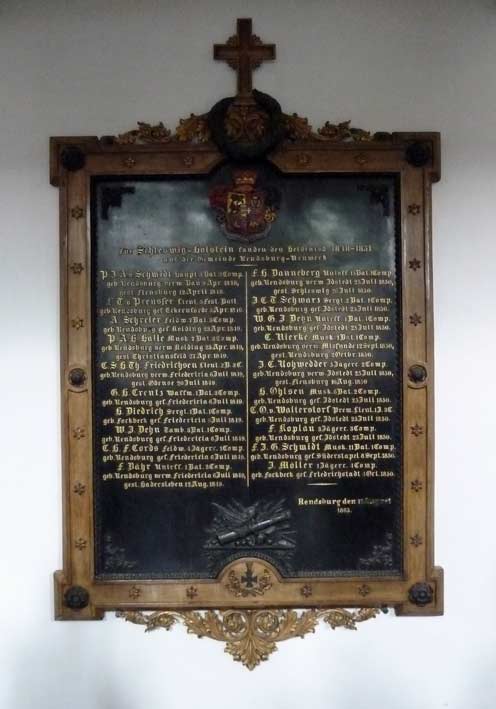 Für Schleswig-Holstein fanden den Heldentod 1848-1851
aus der Gemeinde Rendsburg-Neuwerk
P. J. A. Schmidt Hauptm. 2 Comp.
geb. Rendsburg verw. 1848,
gest. Flensburg 12 April 1848.
F. Th. Preusser Lieut. 5 Fest. Batt.
geb. Rendsburg gef. Eckernförde 5 April 1849.
A. Schreter Feldw. 7 Bat. 3 Comp.
geb. Rendsburg gef. Kolding 23 April 1849.
P. A. H. Halle Musk. 2 Bat. 2 Comp.
geb. Rendsburg verw. Kolding 23 April 1849,
gest. Christiansfeld 27 April 1849.
C. S. H. Th. Friedrichsen Lieut. 7 B. 2 C.
geb. Rendsburg verw. Friedericia 6 Juli 1849,
gest. Odense 20 Juli 1849.
G. H. Crentz Waffm. 1 Bat. 2 Comp.
geb. Rendsburg gef. Friedericia 6 Juli 1849.
H. Diedrich Sergt. 1 Bat. 1 Comp.
geb. Fockbeck gef. Friedericia 6 Juli 1849.
W. J. Dehn Tamb. 4 Bat. 1 Comp.
geb. Rendsburg gef. Friedericia 6 Juli 1849.
C. H. F. Cords Feldw. 1 Jägerc. 1 Comp.
geb. Rendsburg gef. Friedericia 6 Juli 1849.
F. Pähr Unteff. 1 Bat. 2 Comp.
geb. Rendsburg verw. Friedericia 6 Juli 1849,
gest. Hadersleben 12 Aug. 1849.
F. H. Danneberg Unteff. 11 Bat. 1 Comp.
geb. Rendsburg verw. Idstedt 25 Juli 1850,
gest. Schleswig Juli 1850.
J. C. T. Schwarz Sergt. 2 Bat. 1 Comp.
geb. Rendsburg gef. Idstedt 25 Juli 1850.
W. G. J. Dehn Unteff. 1 Bat. 1 Comp.
geb. Rendsburg gef. Idstedt 25 Juli 1850.
C. Vierke Musk. 1 Bat. 1 Comp.
geb. Rendsburg verw. Missunde 12 Sept. 1850,
gest. Rendsburg 20 Octbr. 1850.
J. C. Rohwedder 2 Jägerc. 2 Comp.
geb. Rendsburg verw. Idstedt 25 Juli 1850,
gest. Flensburg Aug. 1850.
H. Ohlsen Musk. 3 Bat. 2 Comp.
geb. Rendsburg gef. Idstedt 25 Juli 1850.
C. O. v. Walterstorf Prem. Lieut. 1 J. 3 C.
geb. Rendsburg gef. Idstedt 25 Juli 1850.
F. Koplau 2 Jägerc. 3 Comp.
geb. Rendsburg gef. Idstedt 25 Juli 1850.
F. J. G. Schmidt Musk. 11 Bat. 1 Comp.
geb. Rendsburg gef. Süderstapel 8 Sept. 1850.
J. Möller 1 Jägerc. 1 Comp.
geb. Fockbeck gef. Friedrichstadt 4 Oct. 1850.
Rendsburg den August
1863.